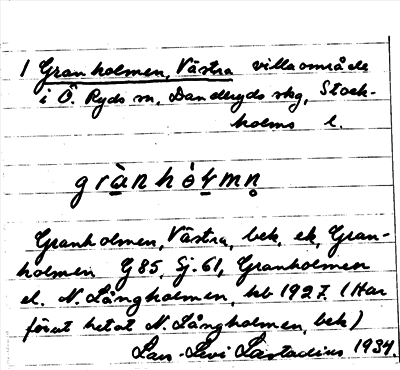 1 Granholmen, Västra villaområde
i Ö. Ryds sn, Danderyds skg, Stock-
holms l.
grànhòlmn̥
Granholmen, Västra, bek, ek, Gran-
holmen G 85, Sj. 61, Granholmen
el. N. Långholmen, hb 1927. (Har
förut hetat N. Långholmen, bek)
Lars-Levi Læstadius 1934.